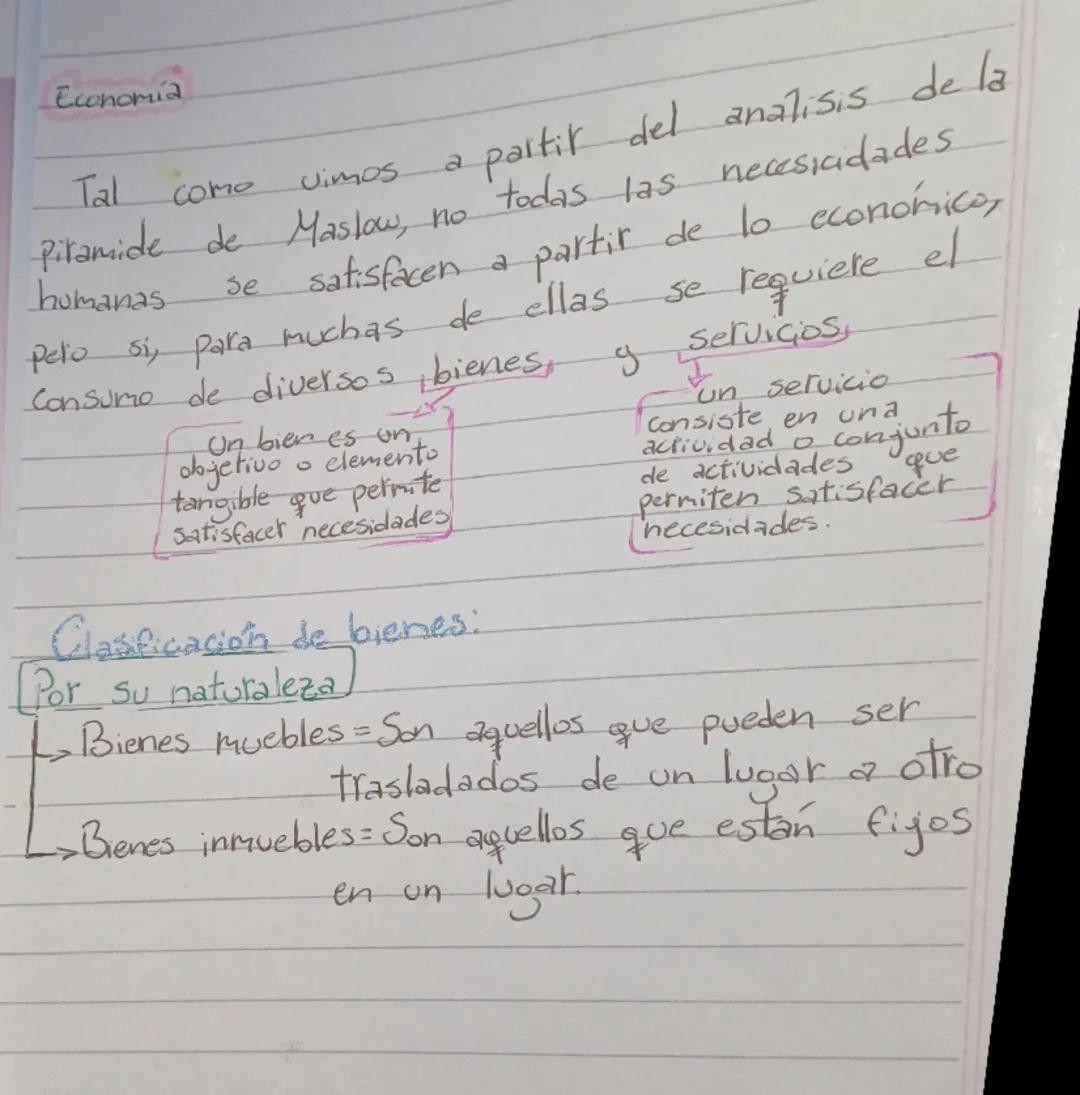 Economía
Tal como vimos a partir del analisis de la
piramide de Maslow, no todas las necesicidades
humanas se satisfacen a partir de lo económico,
pero si, para muchas de ellas se requiere el
consumo de diversos bienes y servicios
Un bien es un
objetivo o elemento
tangible que permite
satisfacer necesidades
un servicio
consiste en una
actividad o conjunto
de actividades que
permiten satisfacer
necesidades.
Clasificación de bienes:
Por su naturaleza
Bienes muebles = Son aquellos que pueden ser
trasladados de un lugar a otro
Bienes inmuebles = Son aquellos que están fijos
en un lugar.